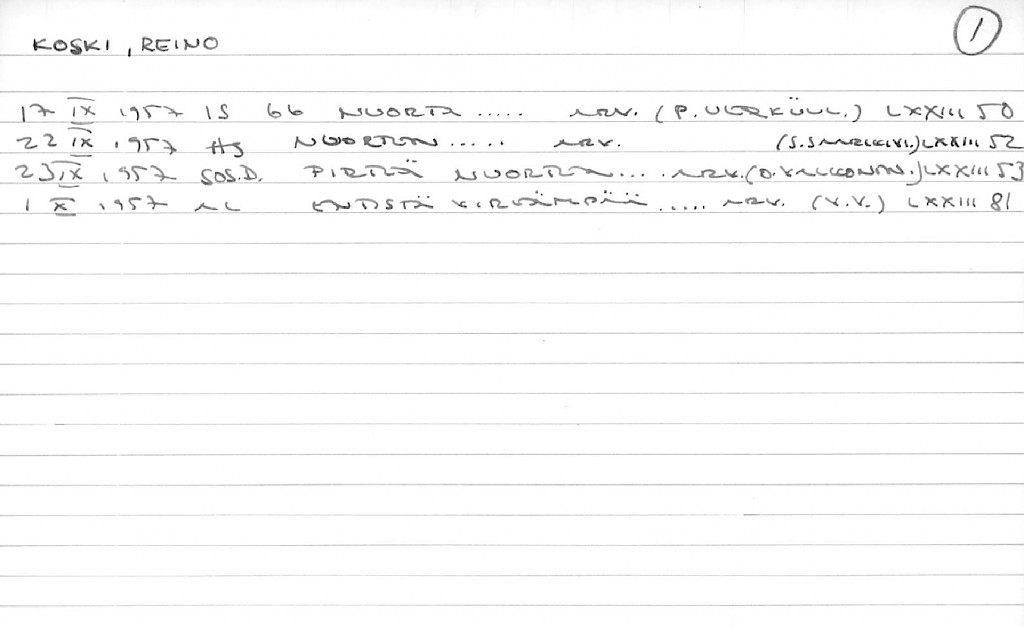 KOSKI, REINO
1
17 IX 1957 IS 66 NUORTA ..... ARV. (P. UEXKÜLL.) LXXIII 50
22 IX 1957 HS NUORTEN ..... ARV. (S. SARKIKIVI.) LXXIII 52
23 IX 1957 SOS.D. PIRTEÄ NUORTEN .... ARV. (O. VALKONEN.) LXXIII 53
1 X 1957 AL ENTISTÄ VIREÄMPÄÄ ..... ARV. (V.V.) LXXIII 81